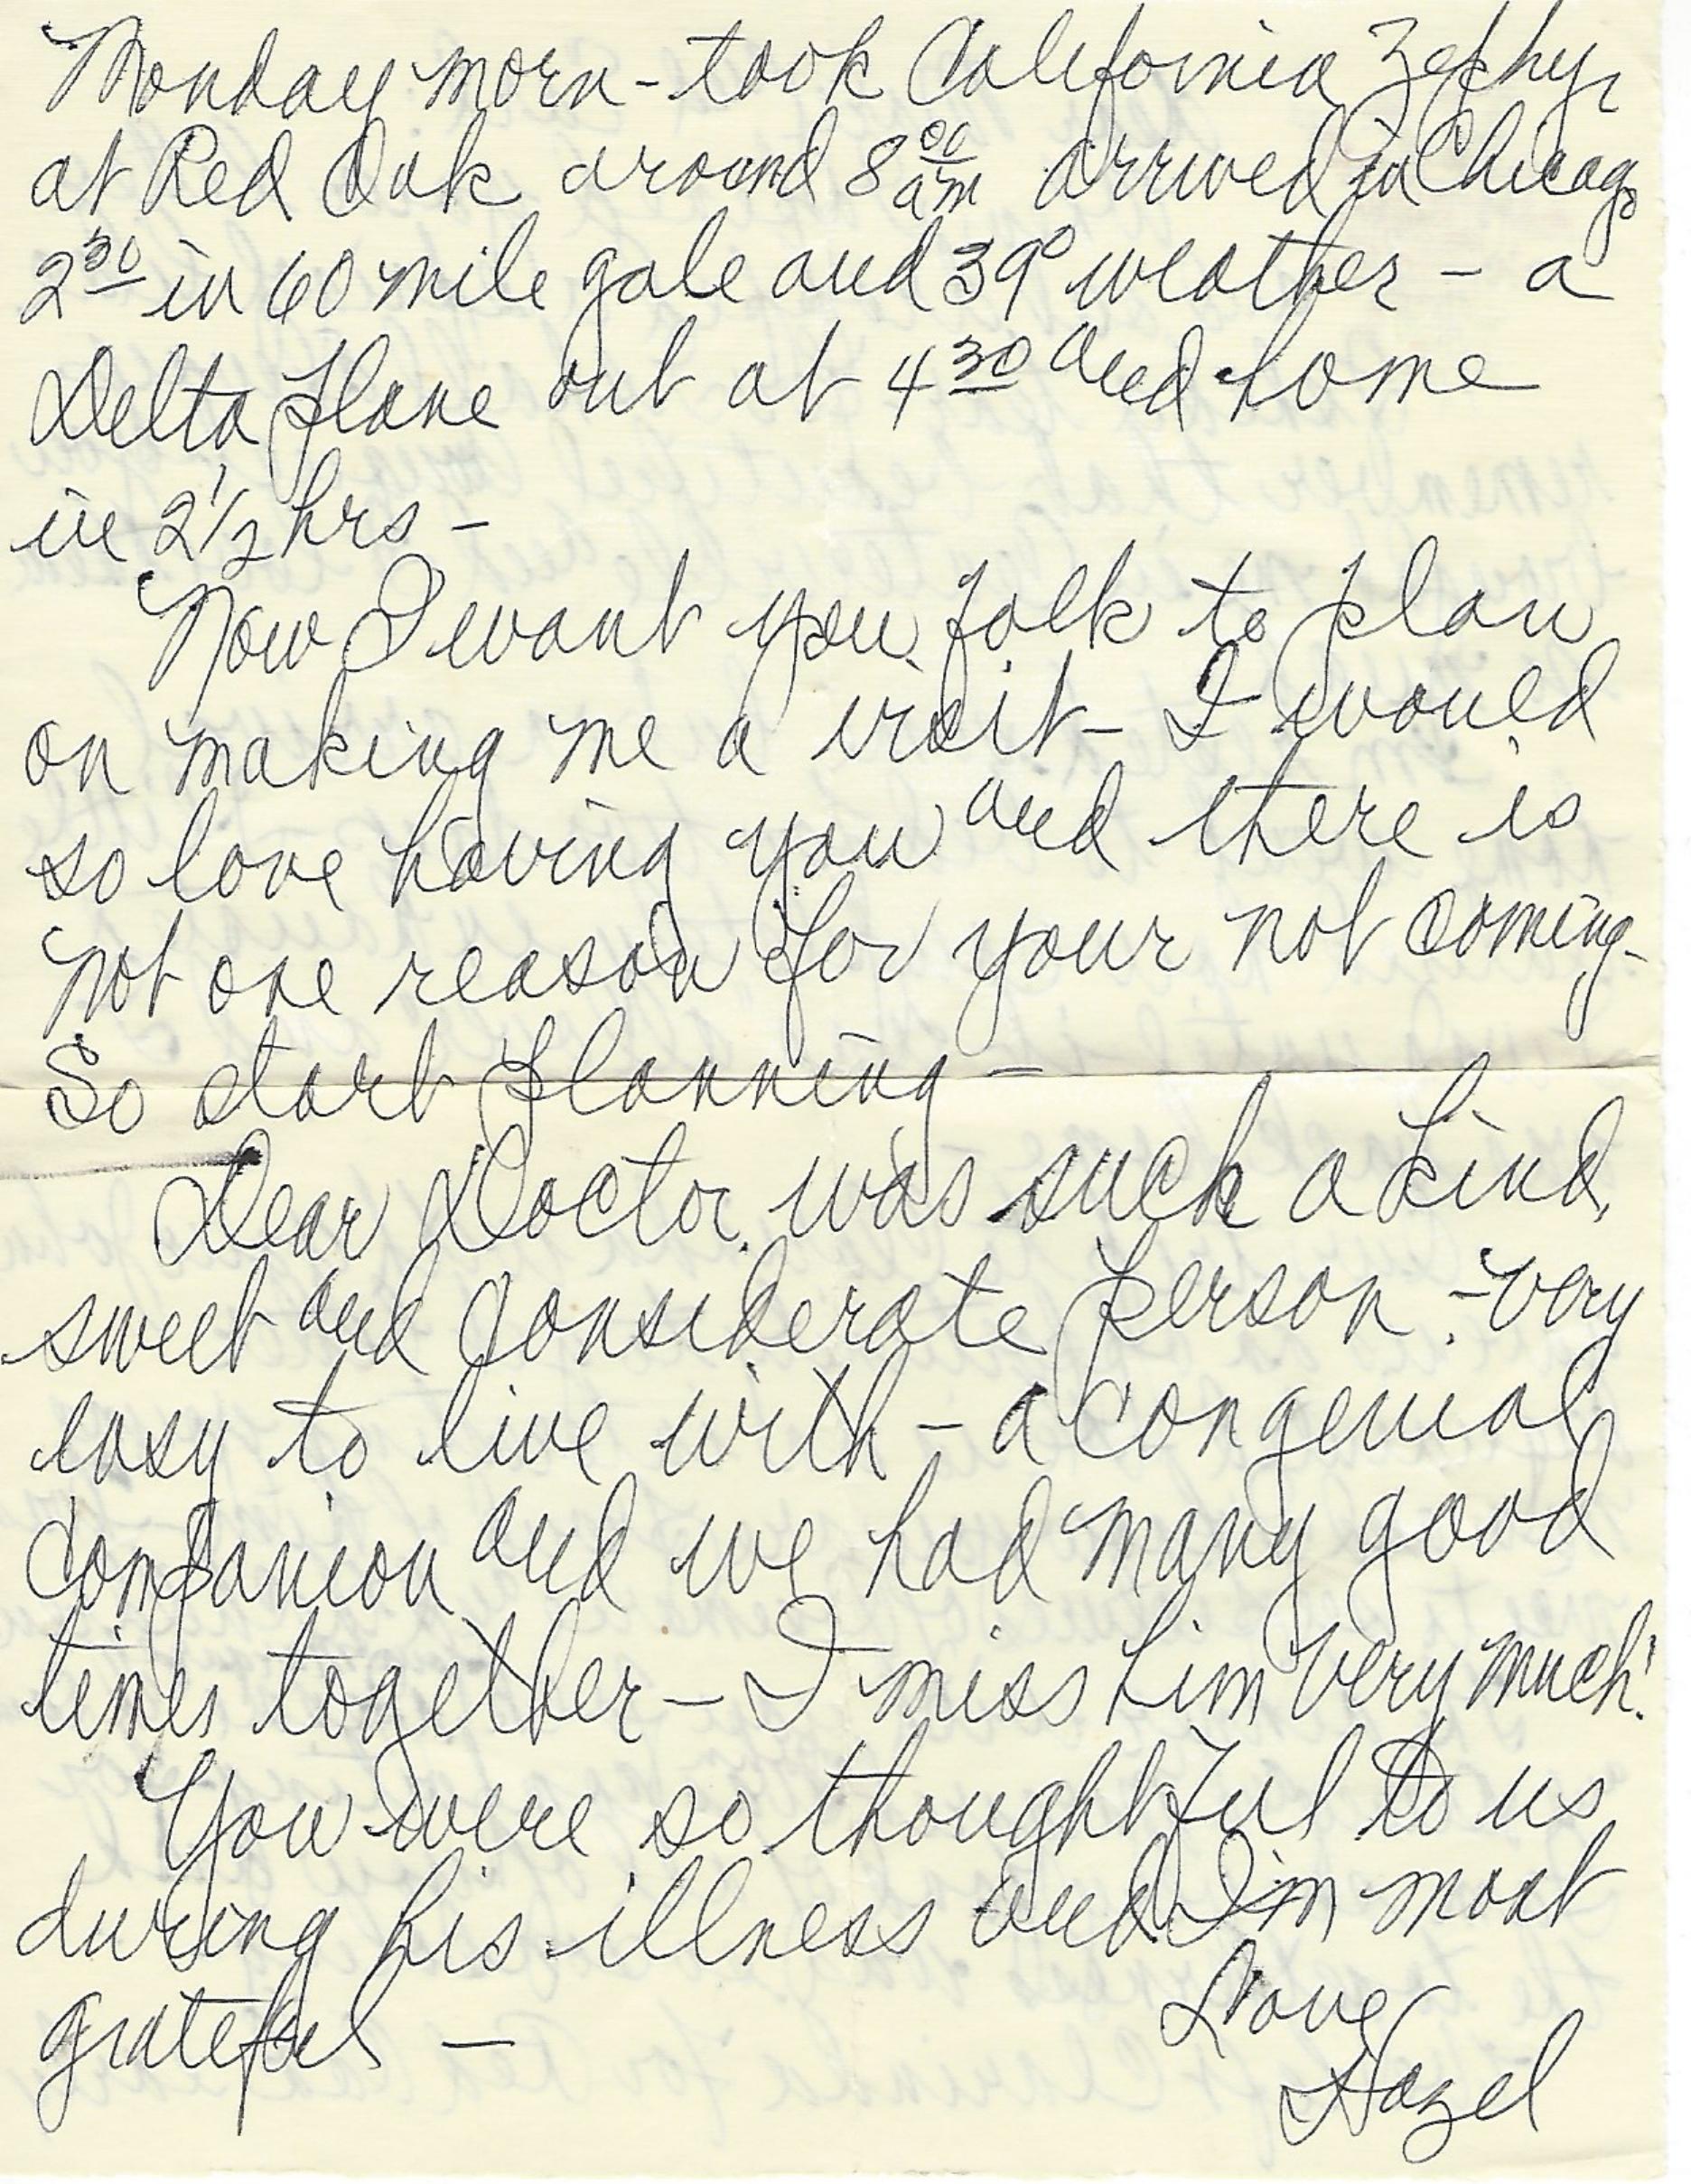 Monday morn - took California Zephyr
at Red Oak around 8 00 am arrived in Chicago
2 30 in 60 mile gale and 39° weather - a
Delta plane out at 4 30 and home
in 2 1/2 hrs -
Now I want you folk to plan
on making me a visit - I would
so love having you and there is
not one reason for your not coming -
So start planning -
Dear Doctor was such a kind,
sweet and considerate person - very
easy to live with - a congenial
companion and we had many good
times together - I miss him very much!
You were so thoughtful to us
during his illness and I'm most
grateful -
Love
Hazel